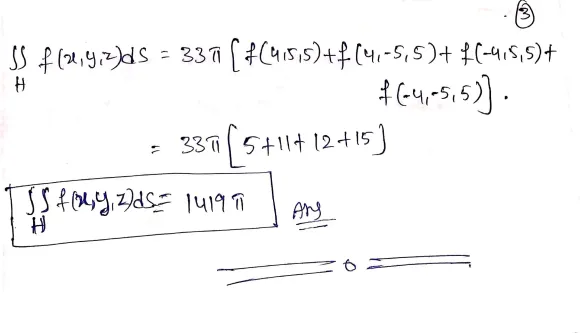 ③
∬ f(x,y,z)dS = 33π [f(4,5,5)+f(4,-5,5)+f(-4,5,5)+
H
f(-4,-5,5)].
= 33π [5+11+12+15]
∬ f(x,y,z)dS = 1419π Ans
H